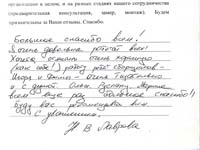 организации в целом, и на разных стадиях нашего сотрудничества
(предварительная консультация, замер, монтаж). Будем
признательны за Ваши отзывы. Спасибо.
Большое спасибо всем!
Я очень довольна работой всех!
Хочется отметить очень хорошую
работу сборщиков -
Игоря и
и с душой.
всем еще раз большое спасибо!!
Буду вас рекомендовать всем.
С уважением
Н В Лаврова